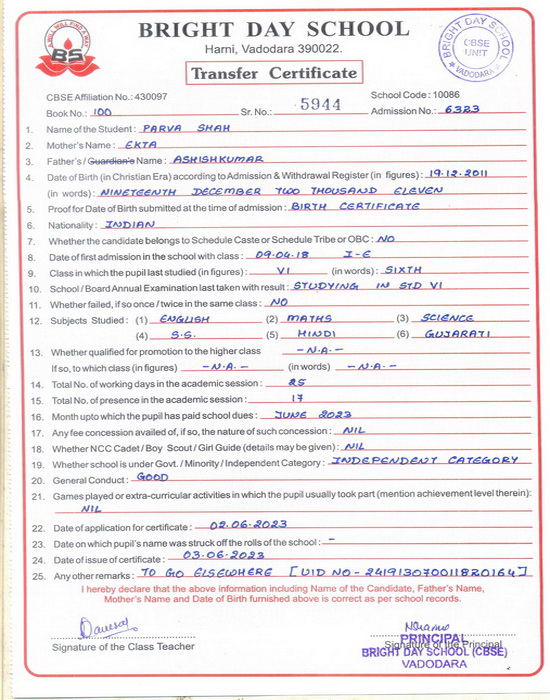 A WILL WILL FIND A WAY
BS
BRIGHT DAY SCHOOL
Harni, Vadodara 390022.
Transfer Certificate
BRIGHT DAY SCHOOL
CBSE
UNIT
VADODARA
CBSE Affiliation No.: 430097 School Code : 10086
Book No.: 100 Sr. No.: 5944 Admission No.: 6323
1. Name of the Student : PARVA SHAH
2. Mother's Name : EKTA
3. Father's / Guardian's Name : ASHISHKUMAR
4. Date of Birth (in Christian Era) according to Admission & Withdrawal Register (in figures) : 19.12.2011
(in words) : NINETEENTH DECEMBER TWO THOUSAND ELEVEN
5. Proof for Date of Birth submitted at the time of admission : BIRTH CERTIFICATE
6. Nationality : INDIAN
7. Whether the candidate belongs to Schedule Caste or Schedule Tribe or OBC : NO
8. Date of first admission in the school with class : 09.04.18 I-E
9. Class in which the pupil last studied (in figures) : VI (in words) : SIXTH
10. School / Board Annual Examination last taken with result : STUDYING IN STD VI
11. Whether failed, if so once / twice in the same class : NO
12. Subjects Studied : (1) ENGLISH (2) MATHS (3) SCIENCE
(4) S.S. (5) HINDI (6) GUJARATI
13. Whether qualified for promotion to the higher class - N.A. -
If so, to which class (in figures) - N.A. - (in words) - N.A. -
14. Total No. of working days in the academic session : 25
15. Total No. of presence in the academic session : 17
16. Month upto which the pupil has paid school dues : JUNE 2023
17. Any fee concession availed of, if so, the nature of such concession : NIL
18. Whether NCC Cadet / Boy Scout / Girl Guide (details may be given) : NIL
19. Whether school is under Govt. / Minority / Independent Category : INDEPENDENT CATEGORY
20. General Conduct : GOOD
21. Games played or extra-curricular activities in which the pupil usually took part (mention achievement level therein):
NIL
22. Date of application for certificate : 02.06.2023
23. Date on which pupil's name was struck off the rolls of the school : -
24. Date of issue of certificate : 03.06.2023
25. Any other remarks : TO GO ELSEWHERE [UID NO - 241913070011820164]
I hereby declare that the above information including Name of the Candidate, Father's Name,
Mother's Name and Date of Birth furnished above is correct as per school records.
Signature of the Class Teacher
Signature of the Principal
PRINCIPAL
BRIGHT DAY SCHOOL (CBSE)
VADODARA